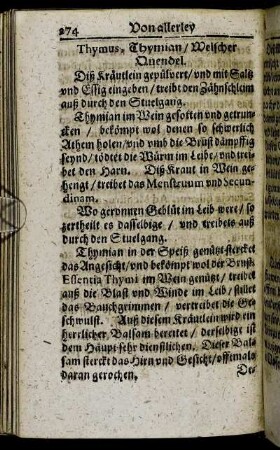 274 Von allerley
Thymus, Thymian / Welscher
Quendel.
Diß Kräutlein gepülvert / und mit Saltz
und Essig eingeben / treibt den Zähnschlim
auß durch den Stuelgang.
Thymian im Wein gesotten und getrun-
cken / bekömpt wol denen so schwerlich
Athem holen / und umb die Brust dämpffig
seynd / tödtet die Würm im Leibe / und trei-
bet den Harn. Diß Kraut in Wein ge-
hengt / treibet das Menstruum und Secun-
dinam.
Wo gerunnen Geblüt im Leib were / so
zertheilt es dasselbige / und treibets auß
durch den Stuelgang.
Thymian in der Speiß genützt stercket
das Angesicht / und bekömpt wol der Brust
Essentia Thymi im Wein genützt / treibet
auß die Blast und Winde im Leib / stillet
das Bauchgrimmen / vertreibet die Ge-
schwulst. Auß diesem Kräutlein wird ein
herrlicher Balsam bereitet / derselbige ist
dem Häupt sehr dienstlichen. Dieser Bal-
sam sterckt das Hirn und Gesicht / offtmals
daran gerochen.
De-